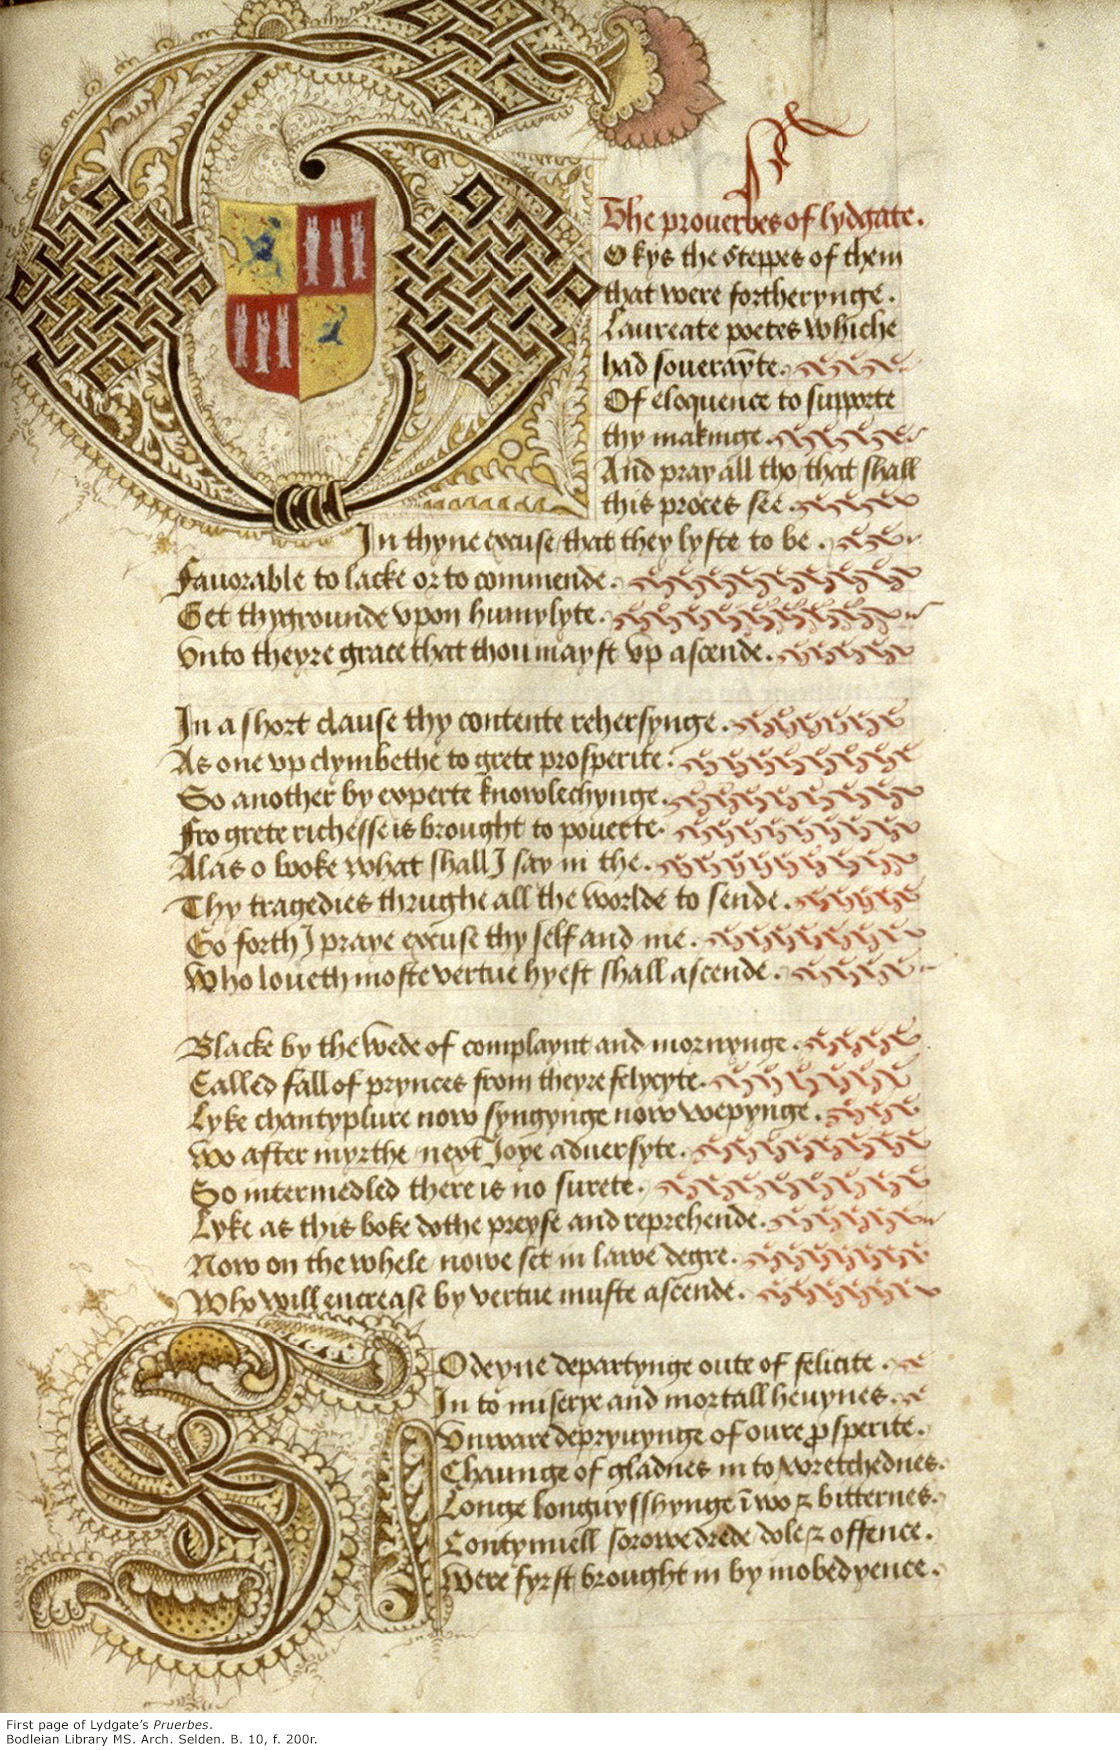 The prouerbes of lydgate.
GO kys the steppes of them
that were fortherynge.
Laureate poetes whiche
had souerayte.
Of eloquence to supporte
thy makinge.
And pray all tho that shall
this proces see.
In thyne excuse that they lyste to be.
Fauorable to lacke or to commende.
Set thy grounde vpon humylyte.
Vnto theyre grace that thou mayst vp ascende.
In a short clause thy contente rehersynge.
As one vp clymbethe to grete prosperite:
So another by experte knowlechynge.
Fro grete richesse is brought to pouerte.
Alas o booke what shall I say in the.
Thy tragedies thrughe all the worlde to sende.
Go forth I praye excuse thy self and me.
Who loueth moste vertue hyest shall ascende.
Blacke by the wede of complaynt and mornynge.
Called fall of prynces from theyre felycyte.
Lyke chantyplure now syngynge now wepynge.
Wo after myrthe next Joye aduersyte.
So intermedled there is no surete.
Lyke as this boke dothe preyse and reprehende.
Now on the whele nowe set in lawe degre.
Who will encrease by vertue muste ascende.
SOdeyne departynge oute of felicite.
In to miserye and mortall heuynes.
Vnware depryuynge of oure ꝓsperite.
Chaunge of gladnes in to wretchednes.
Longe longuysshynge ī wo ⁊ bitternes.
Contynuell sorowe drede dole ⁊ offence.
Were fyrst brought in by inobedyence.
First page of Lydgate’s Pruerbes.
Bodleian Library MS. Arch. Selden. B. 10, f. 200r.